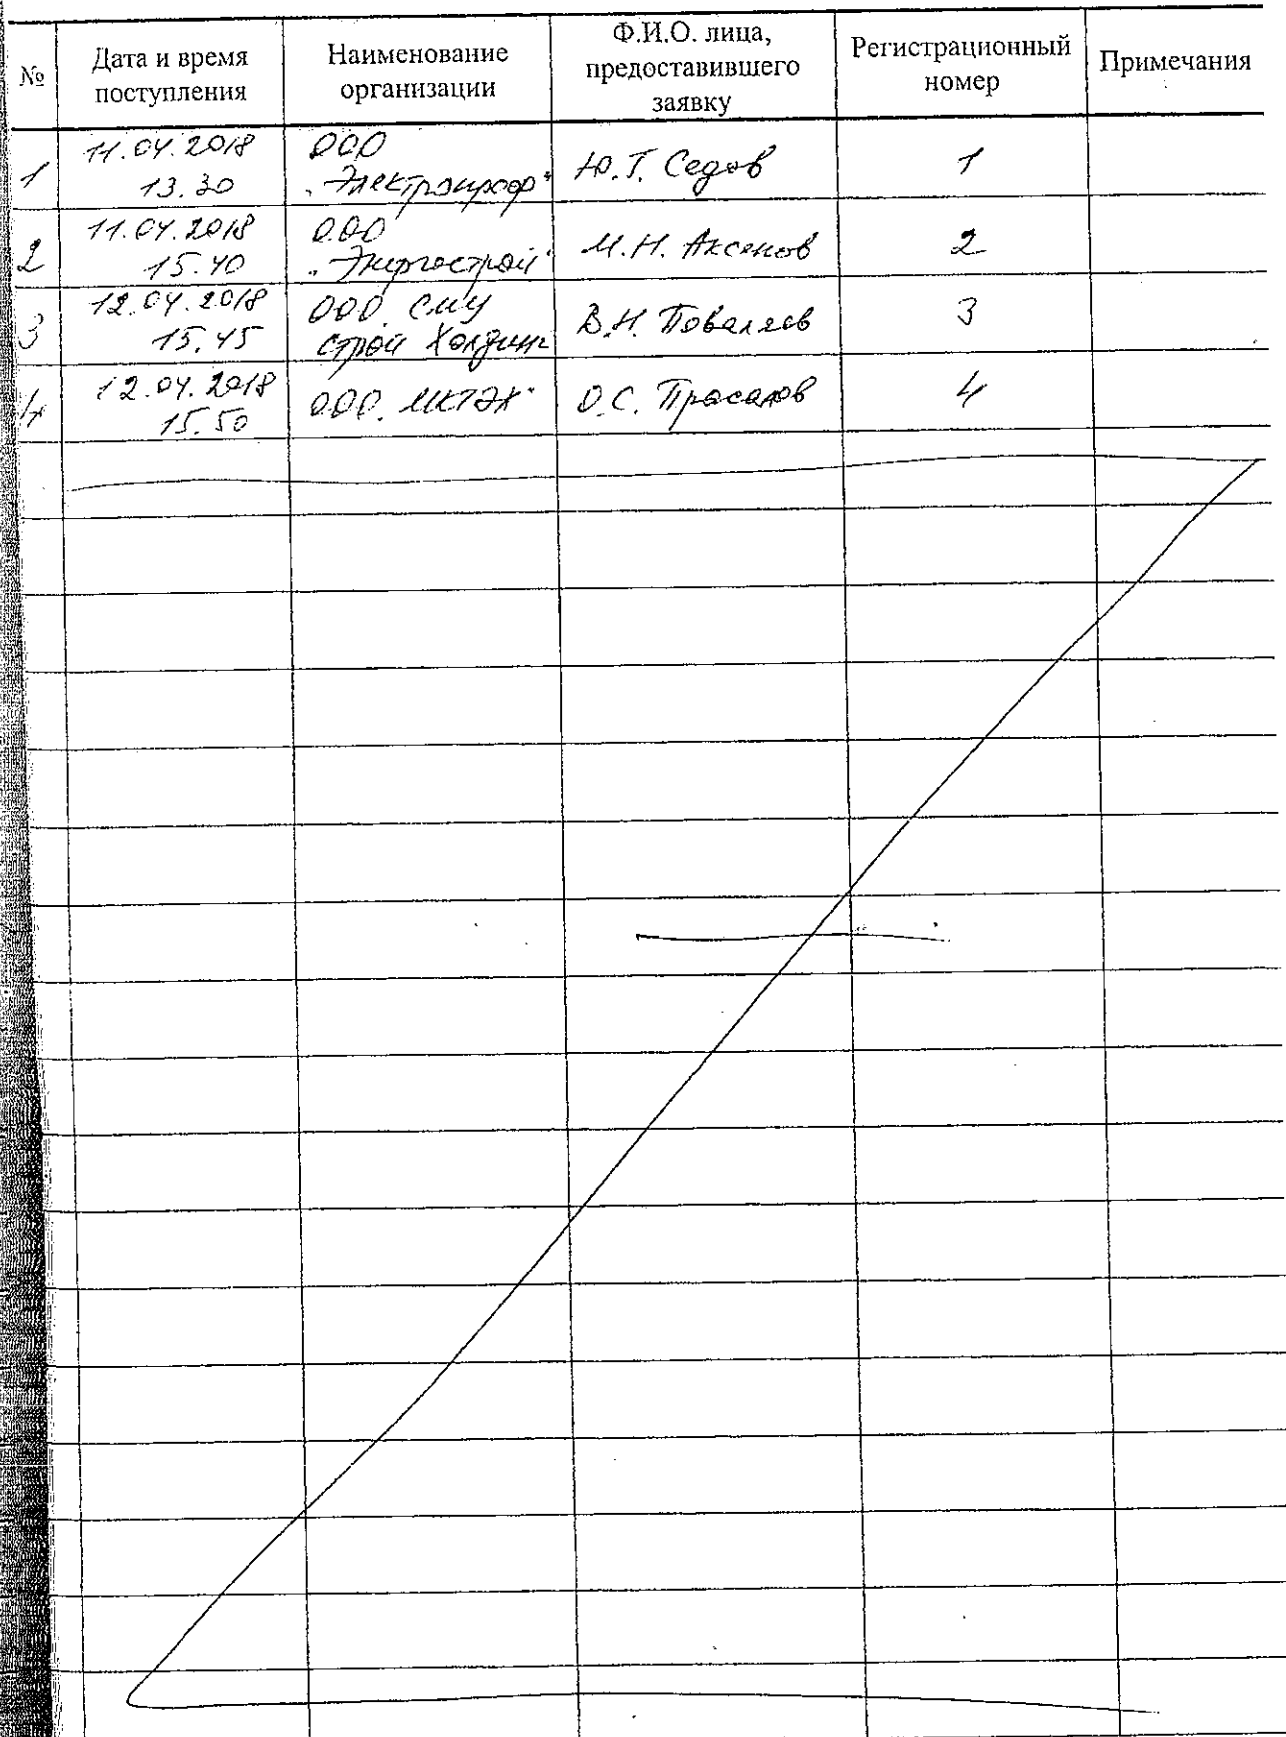 №
Дата и время
поступления
Наименование
организации
Ф.И.О. лица,
предоставившего
заявку
Регистрационный
номер
Примечания
1
11.04.2018
13.30
ООО
"Электропроф"
Ю.Т. Седов
1
2
11.04.2018
15.40
ООО
"Энергострой"
М.Н. Аксенов
2
3
12.04.2018
15.45
ООО СМУ
Строй Холдинг
В.Н. Поваляев
3
4
12.04.2018
15.50
ООО "МКТЭК"
О.С.
4